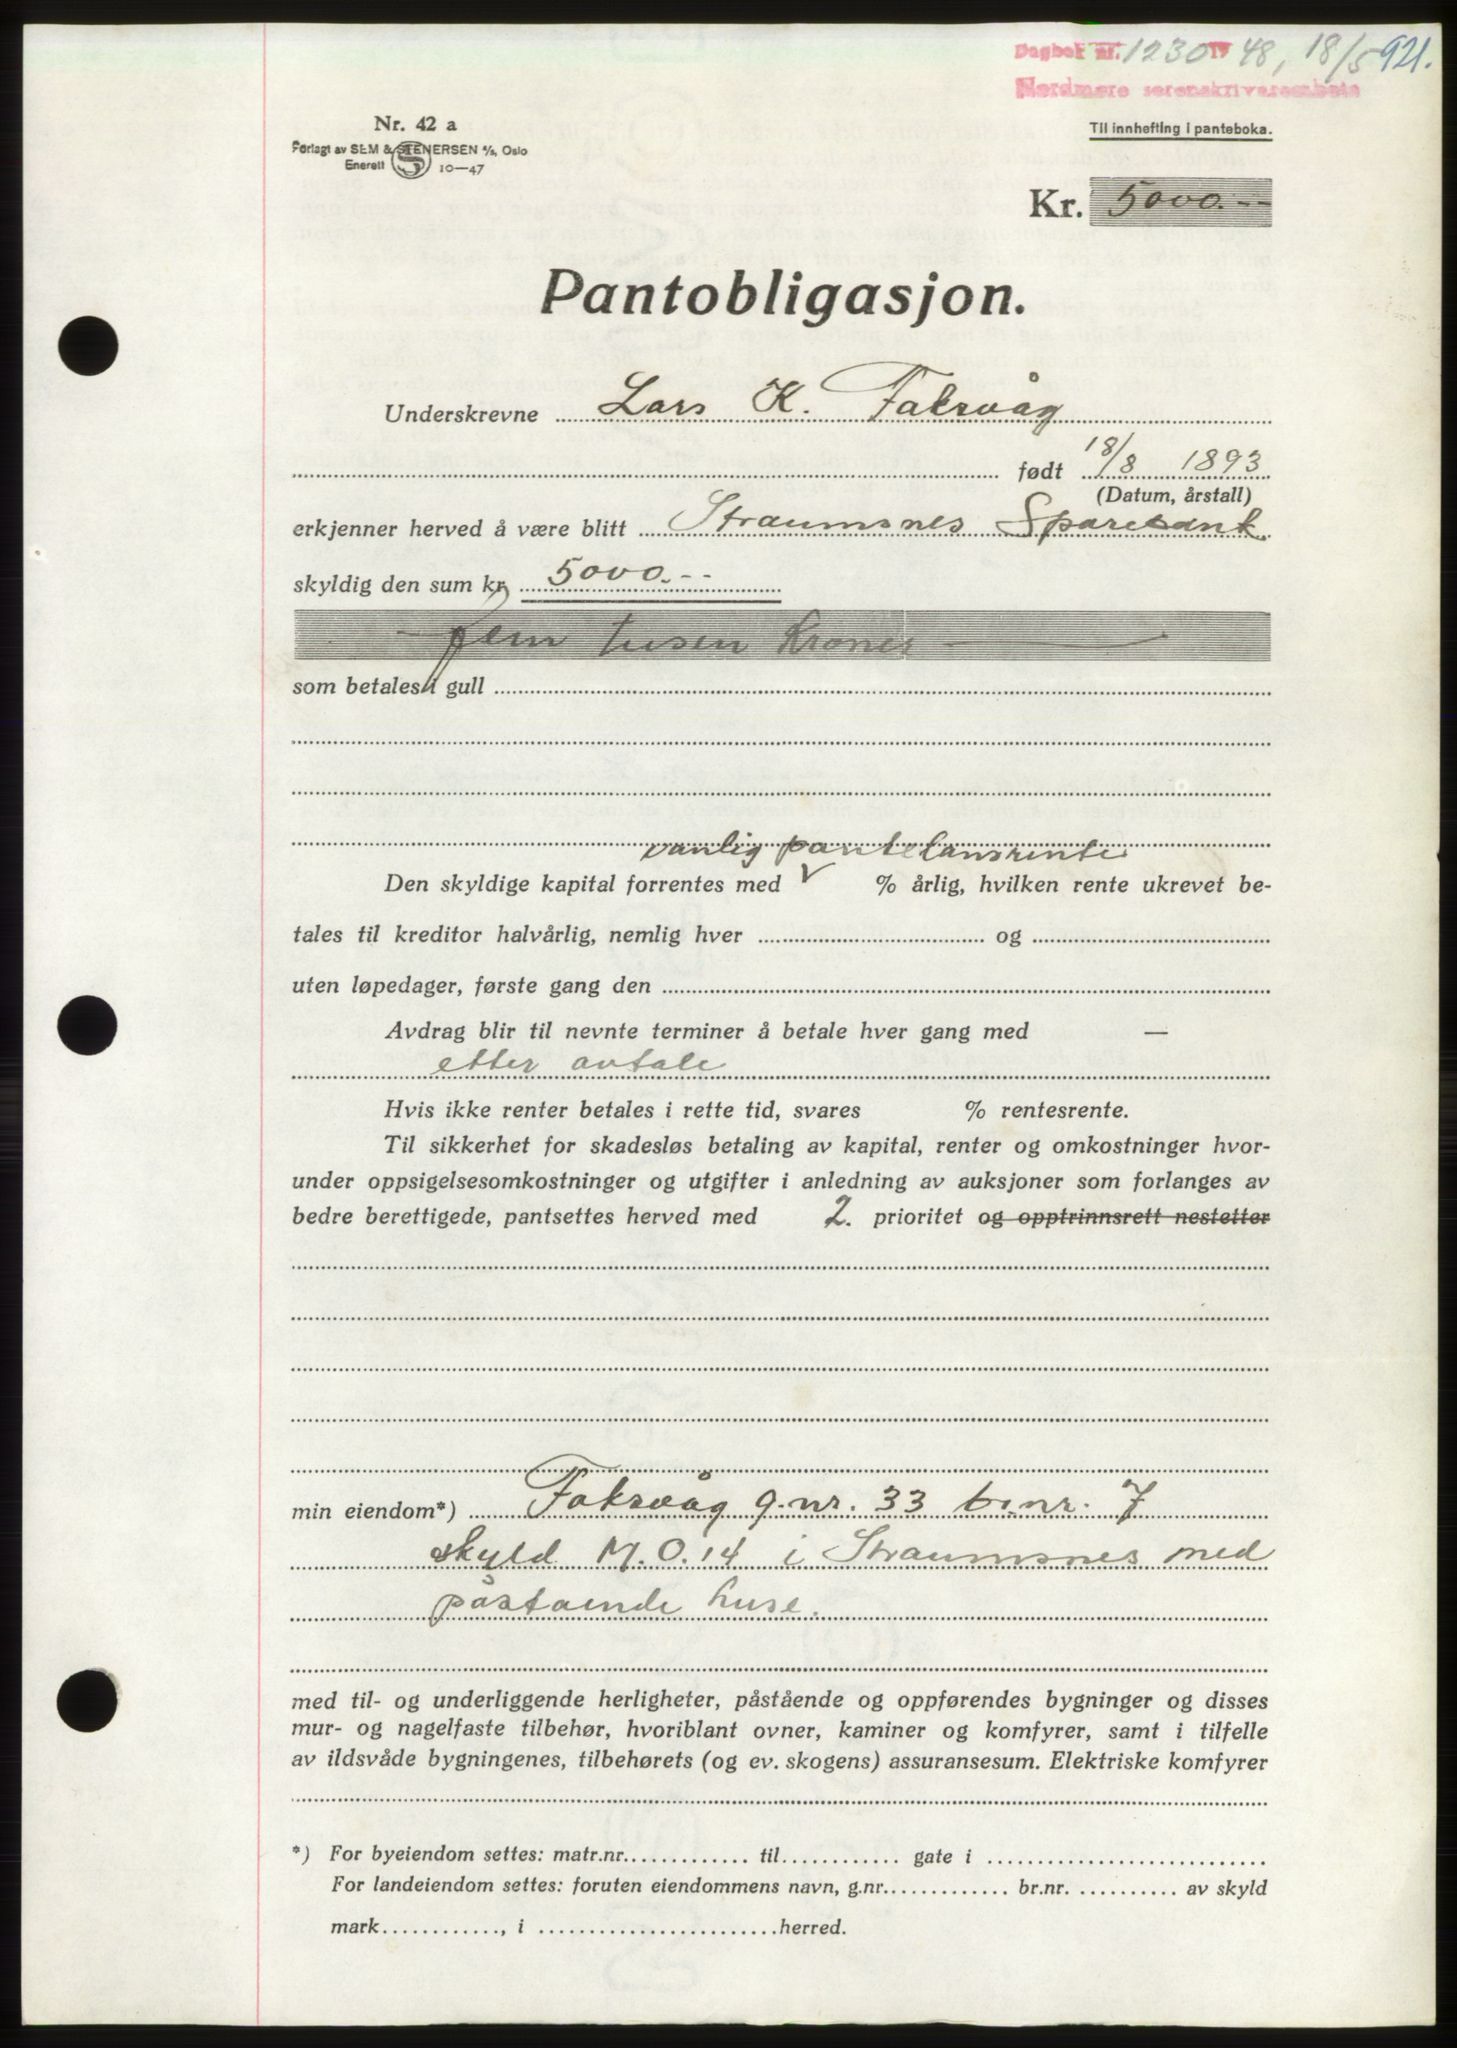 Dagbok nr. 1230 19 48, 18/5 921.
Nordmøre sorenskriverembete
Nr. 42 a
Forlagt av SEM & STENERSEN A/S, Oslo
Enerett S 10—47
Til innhefting i panteboka.
Kr. 5000.--
Pantobligasjon.
Underskrevne Lars K. Faksvåg
født 18/8 1893
(Datum, årstall)
erkjenner herved å være blitt Straumsnes Sparebank
skyldig den sum kr. 5000.--
fem tusen kroner
som betales i gull
vanlig pantelånsrente
Den skyldige kapital forrentes med V % årlig, hvilken rente ukrevet be-
tales til kreditor halvårlig, nemlig hver og
uten løpedager, første gang den
Avdrag blir til nevnte terminer å betale hver gang med —
etter avtale
Hvis ikke renter betales i rette tid, svares % rentesrente.
Til sikkerhet for skadesløs betaling av kapital, renter og omkostninger hvor-
under oppsigelsesomkostninger og utgifter i anledning av auksjoner som forlanges av
bedre berettigede, pantsettes herved med 2. prioritet og opptrinnsrett nestetter
min eiendom*) Faksvåg g.nr. 33 b.nr. 7
skyld M. 0.14 i Straumsnes med
påstående huse.
med til- og underliggende herligheter, påstående og oppførendes bygninger og disses
mur- og nagelfaste tilbehør, hvoriblant ovner, kaminer og komfyrer, samt i tilfelle
av ildsvåde bygningenes, tilbehørets (og ev. skogens) assuransesum. Elektriske komfyrer
*) For byeiendom settes: matr.nr. til gate i
For landeiendom settes: foruten eiendommens navn, g.nr. br.nr. av skyld
mark, i herred.